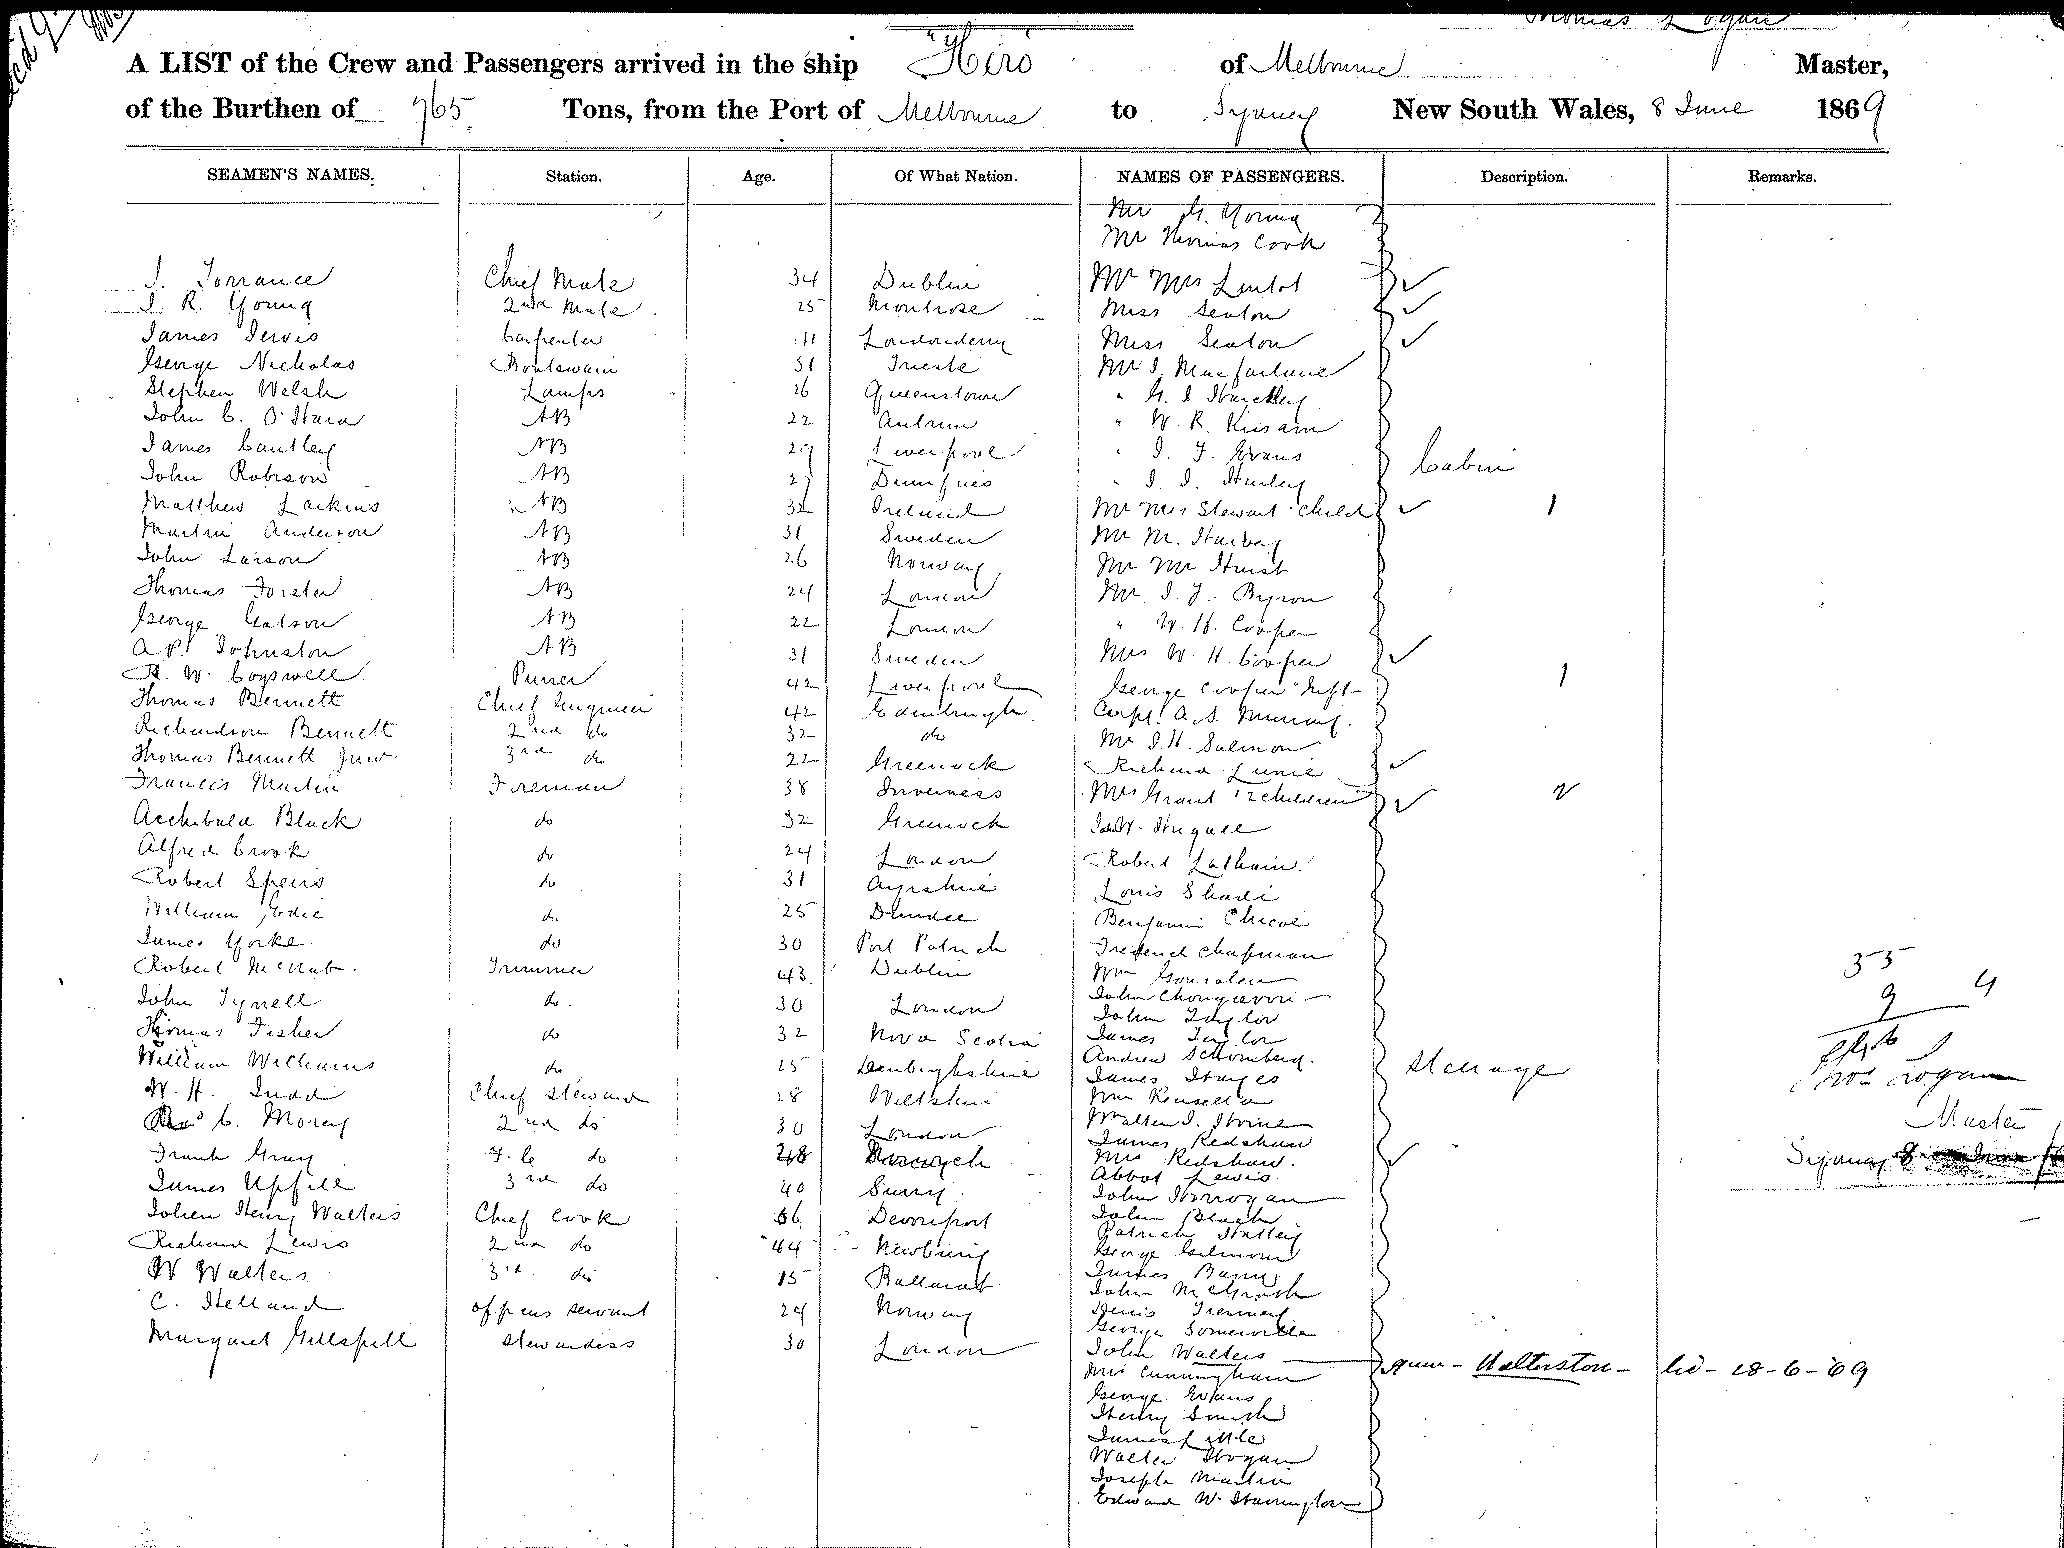 Thomas Logan
A LIST of the Crew and Passengers arrived in the ship "Hero of Melbourne Master,
of the Burthen of 765 Tons, from the Port of Melbourne to Sydney New South Wales, 8 June 1869
SEAMEN'S NAMES. Station. Age. Of What Nation. NAMES OF PASSENGERS. Description. Remarks.
Mr G. Young
Mr Thomas Cook
J. Torrance Chief Mate 34 Dublin Mr Mrs Lintot
J. R. Young 2nd Mate 25 Montrose Miss Seaton
James Jervis Carpenter Londonderry Miss Seaton
George Nicholas Boatswain 31 Trieste Mr J. Macfarlane
Stephen Welsh Lamps 26 Queenstown " G. S
John C. O'Hara AB 22 Antrim " W. R.
James Cantley AB 29 Liverpool " J. F. Evans
John Robison AB 27 Dumfries " J. J. Hurley Cabin
Matthew Larkins AB 32 Ireland Mr Mrs Stewart & Child 1
Martin Anderson AB 31 Sweden Mr M.
John Larson AB 26 Norway Mr Mr Hurst
Thomas Forster AB 24 London Mr J. J. Byron
George Watson AB 22 London " W. H. Cooper
A. P. Johnston AB 31 Sweden Mrs W. H. Cooper
A. W. Cogswell Purser 42 Liverpool George Cooper Inft 1
Thomas Bennett Chief Engineer 42 Edinburgh Capt. A. S. Murray.
Richardson Bennett 2nd do 32 do Mr J. H. Salmon
Thomas Bennett Junr 3rd do 22 Greenock Richard
Francis Martin Fireman 38 Inverness Mrs Grant & 2 children 2
Archibald Black do 32 Greenock
Alfred Crook do 24 London Robert Latham
Robert Speirs do 31 Ayrshire Louis
William Edie do 25 Dundee Benjamin
James Yorke do 30 Port Patrick Frederick Chapman
Robert McNab. Trimmer 43 Dublin Wm Gonsalen
John Tyrrell do 30 London John
John Taylor
Thomas Fisher do 32 Nova Scotia James Taylor
William Williams do 25 Denbighshire Andrew Schomberg. Steerage
James Hayes
W. H. Judd Chief Steward 28 Wiltshire Wm Kensella
C. Morey 2nd do 30 London Walter J. Irvine
James Redshaw
Frank Gray F. C do 28 Mrs Redshaw.
James Upfill 3rd do 40 Surry Abbot Lewis
John Horrogan
John Henry Walters Chief Cook 36 Devonport John Black
Patrick Hatley
Richard Lewis 2nd do 44 Newbury George Gilmour
W Walters 3rd do 15 Ballarat James Barry
John McGrath
C. Helland officers servant 24 Norway Denis
George Somerville
Margaret Gillspill Stewardess 30 London John Walters — Walterston - 18-6-69
Mrs Cunningham
George Evans
Henry Smith
James Little
Walter Hogan
Joseph Martin
Edward W. Harrington
35
9 4
Thos Logan
Master
Sydney 8